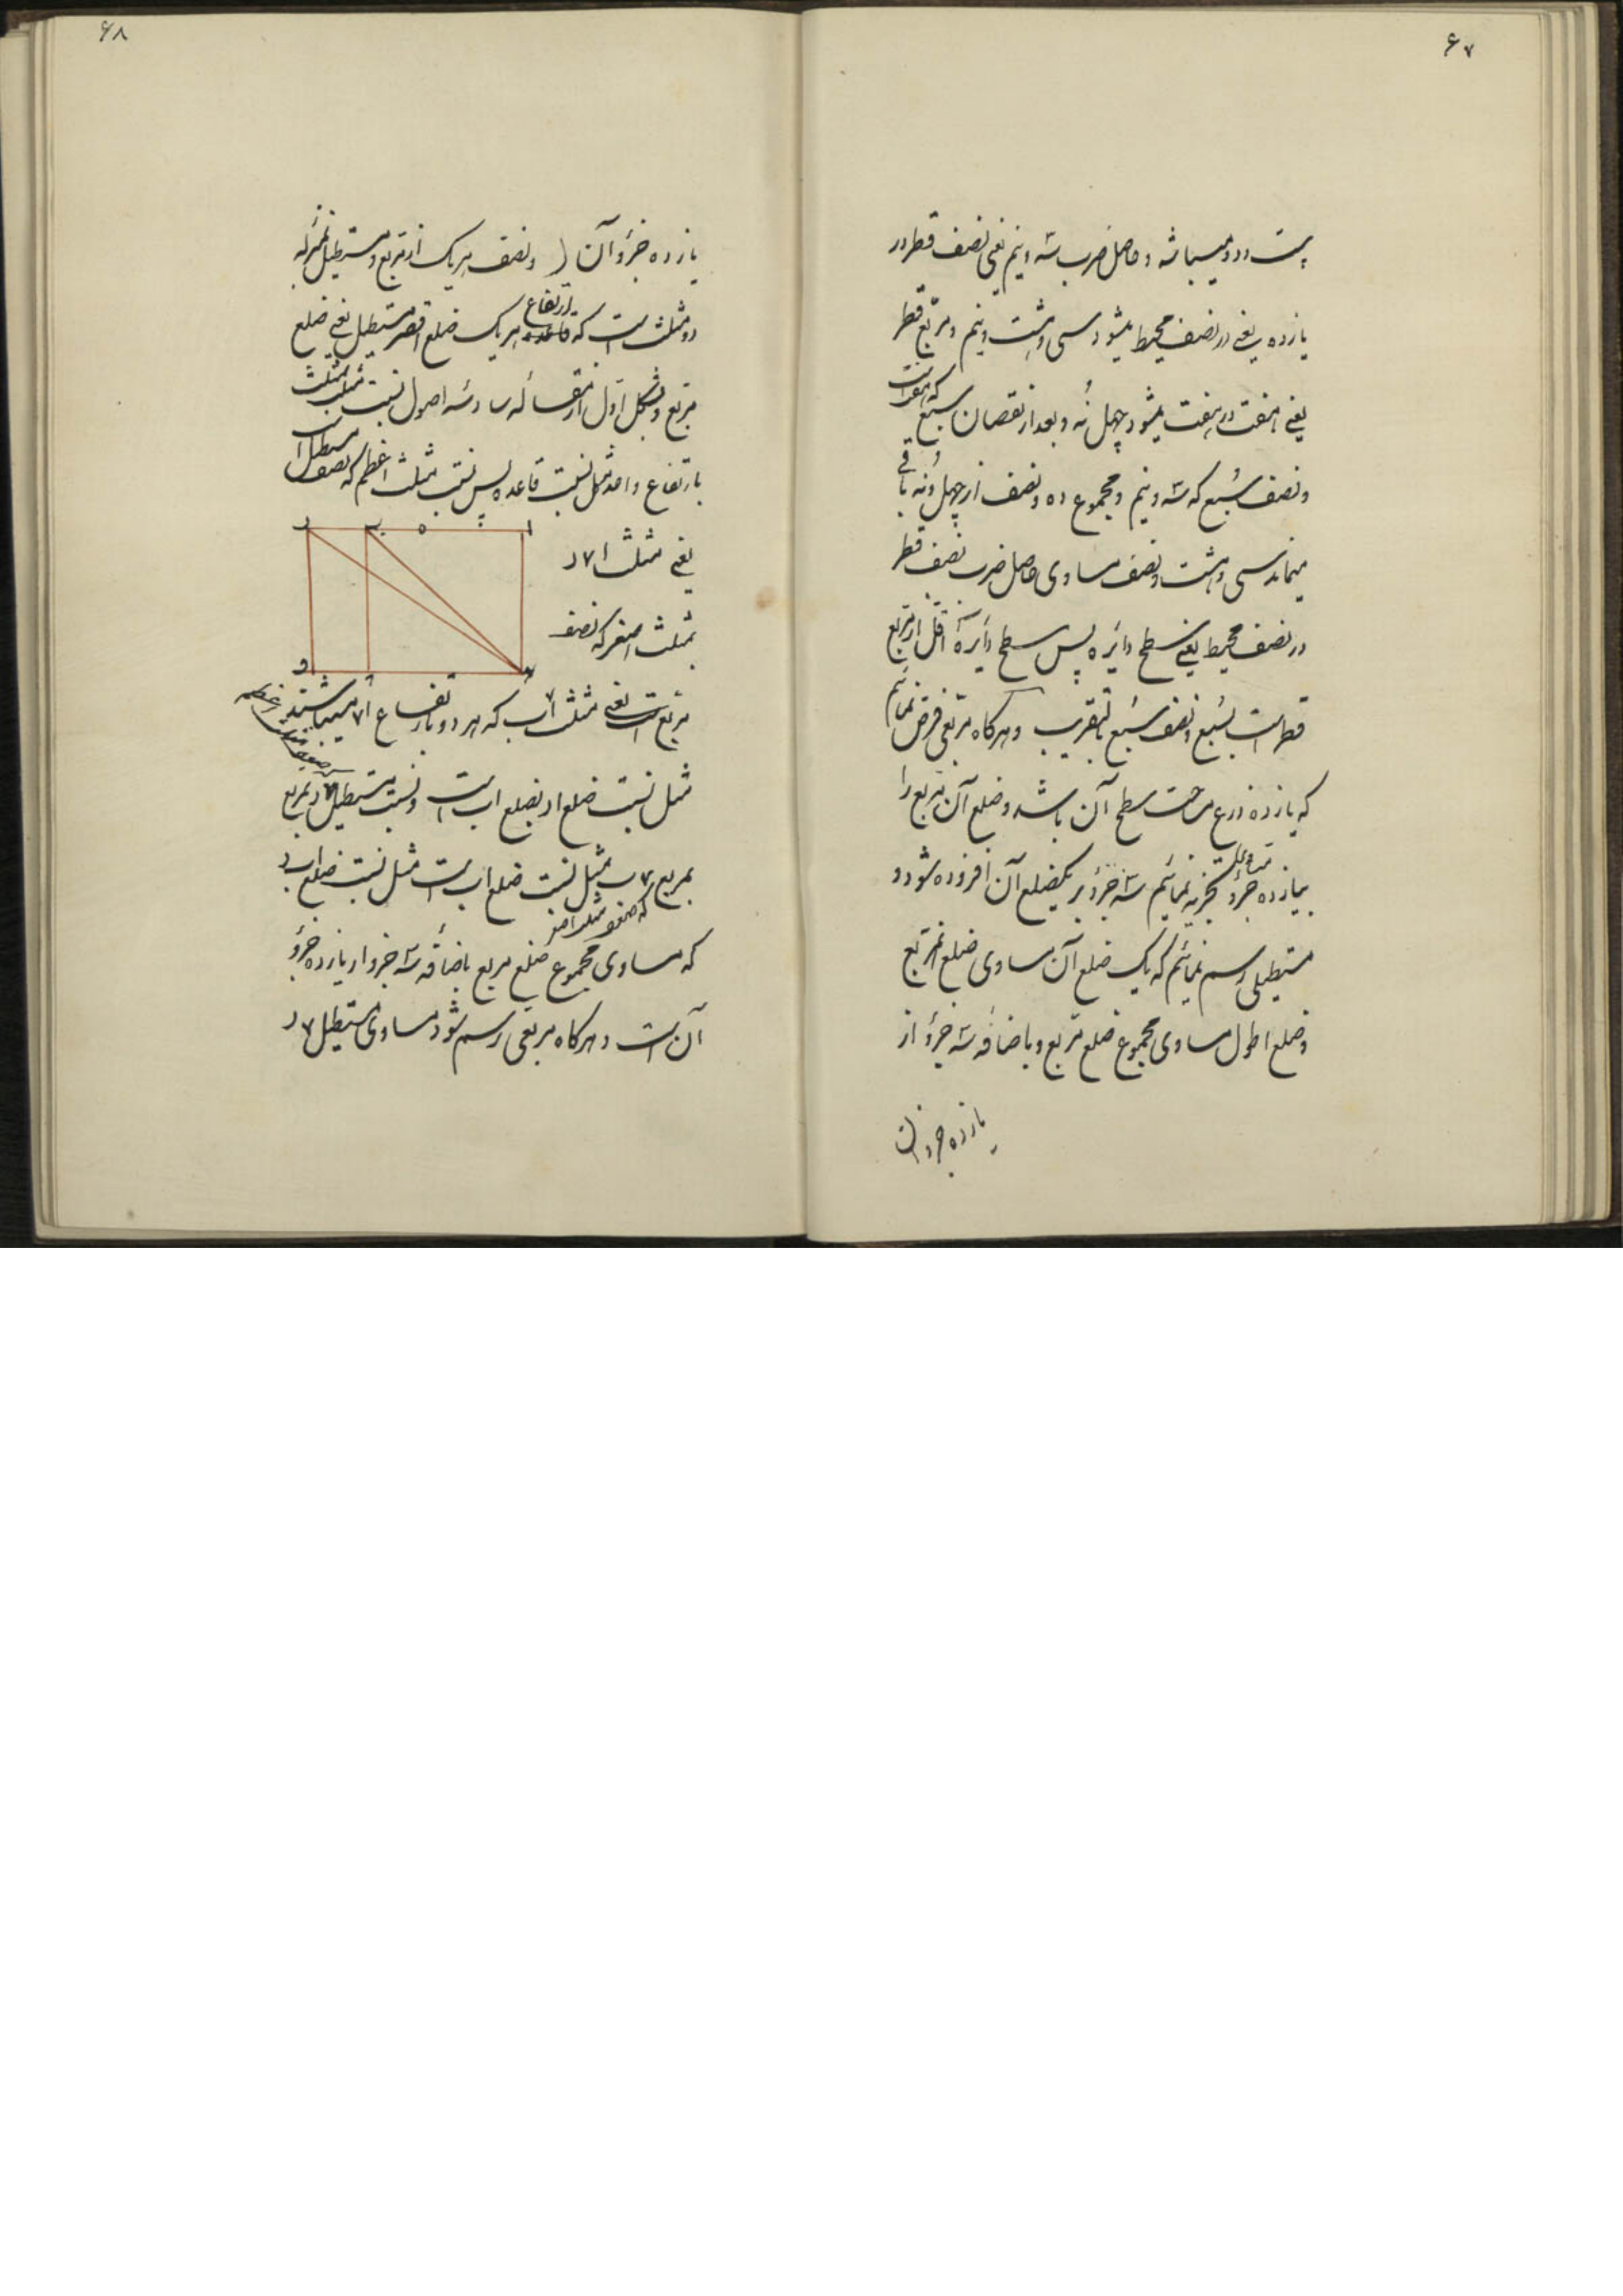 ۶۷
بیست و دو میباشد و حاصل ضرب سه و نیم یعنی نصف قطر در
یازده یعنی در نصف محیط میشود سی و هشت و نیم و مربع قطر
یعنی هفت در هفت میشود چهل نه و بعد از نقصان سبع که هفت است
و نصف سُبع که سه و نیم و مجموع ده و نصف از چهل و نه باقی
میماند سی و هشت و نصف مساوی حاصل ضرب نصف قطر
در نصف محیط یعنی سطح دایره پس سطح دایره اقل از مربع
قطر است بسُبع و نصف سُبع بتقریب و هرگاه مربعی فرض نمائیم
که یازده ذرع مساحت سطح آن باشد و ضلع آن مربع را
بیازده جزؤ متساوی تجزیه نمائیم سه جزؤ بر یکضلع آن افزوده شود و
مستطیلی رسم نمائیم که یک ضلع آن مساوی ضلع مربع
و ضلع اطول مساوی مجموع ضلع مربع و باضافه سه جزؤ از
یازده جزو آن
۶۸
یازده جزؤ آن و نصف هریک از مربع و مستطیل بمنزله
دو مثلث است که قاعده ارتفاع هریک ضلع اقصر مستطیل یعنی ضلع
مربع و بشکل اول از مقاله سادسه اصول نسبت مثلث بمثلث
بارتفاع واحد مثل نسبت قاعده پس نسبت مثلث اعظم که نصف مستطیل است
یعنی مثلث ا۷د
بمثلث اصغر که نصف
ا ه ب د
۷ و
مربع است یعنی مثلث ا۷ب که هر دو بارتفاع ا۷ میباشند
مثل نسبت ضلع اد بضلع اب است و نسبت مستطیل ۷د بمربع
بمربع ۷ب مثل نسبت ضلع اب است مثل نسبت ضلع اد
که ضعف مثلث اصغر
که مساوی مجموع ضلع مربع باضافه سه جزو از یازده جزؤ
آن است و هرگاه مربعی رسم شود مساوی مستطیل ۷د